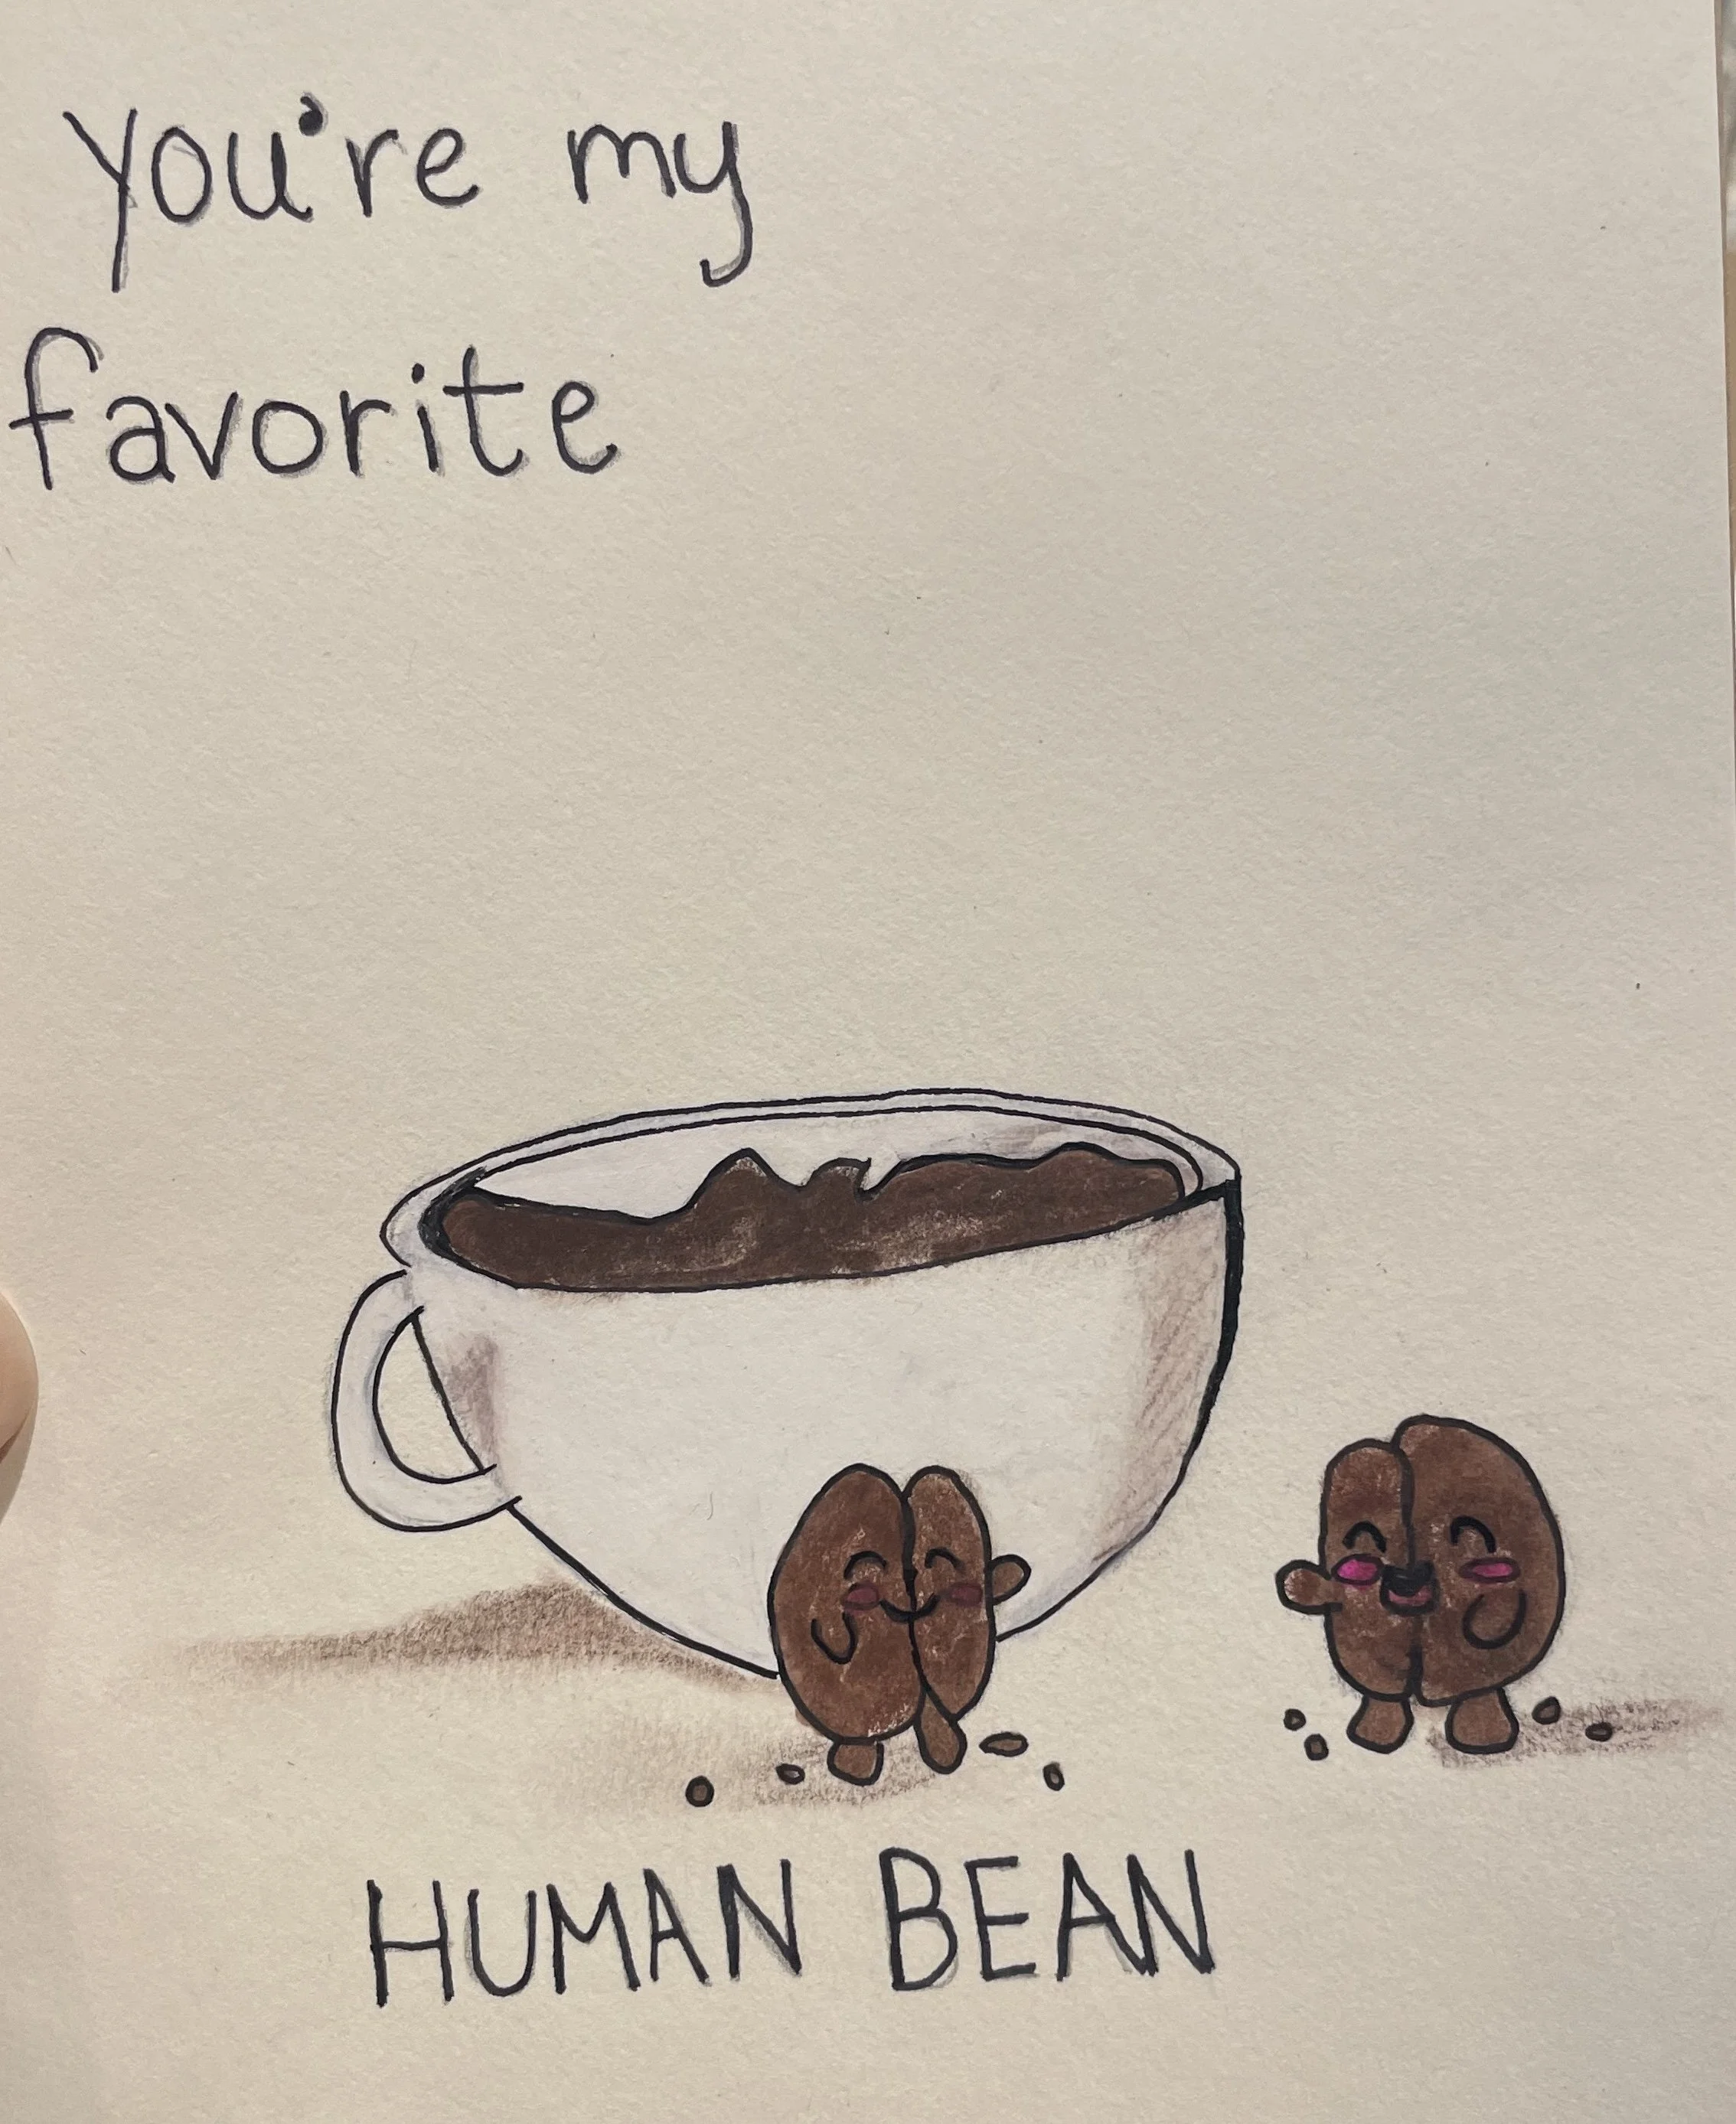 you're my
favorite
HUMAN BEAN